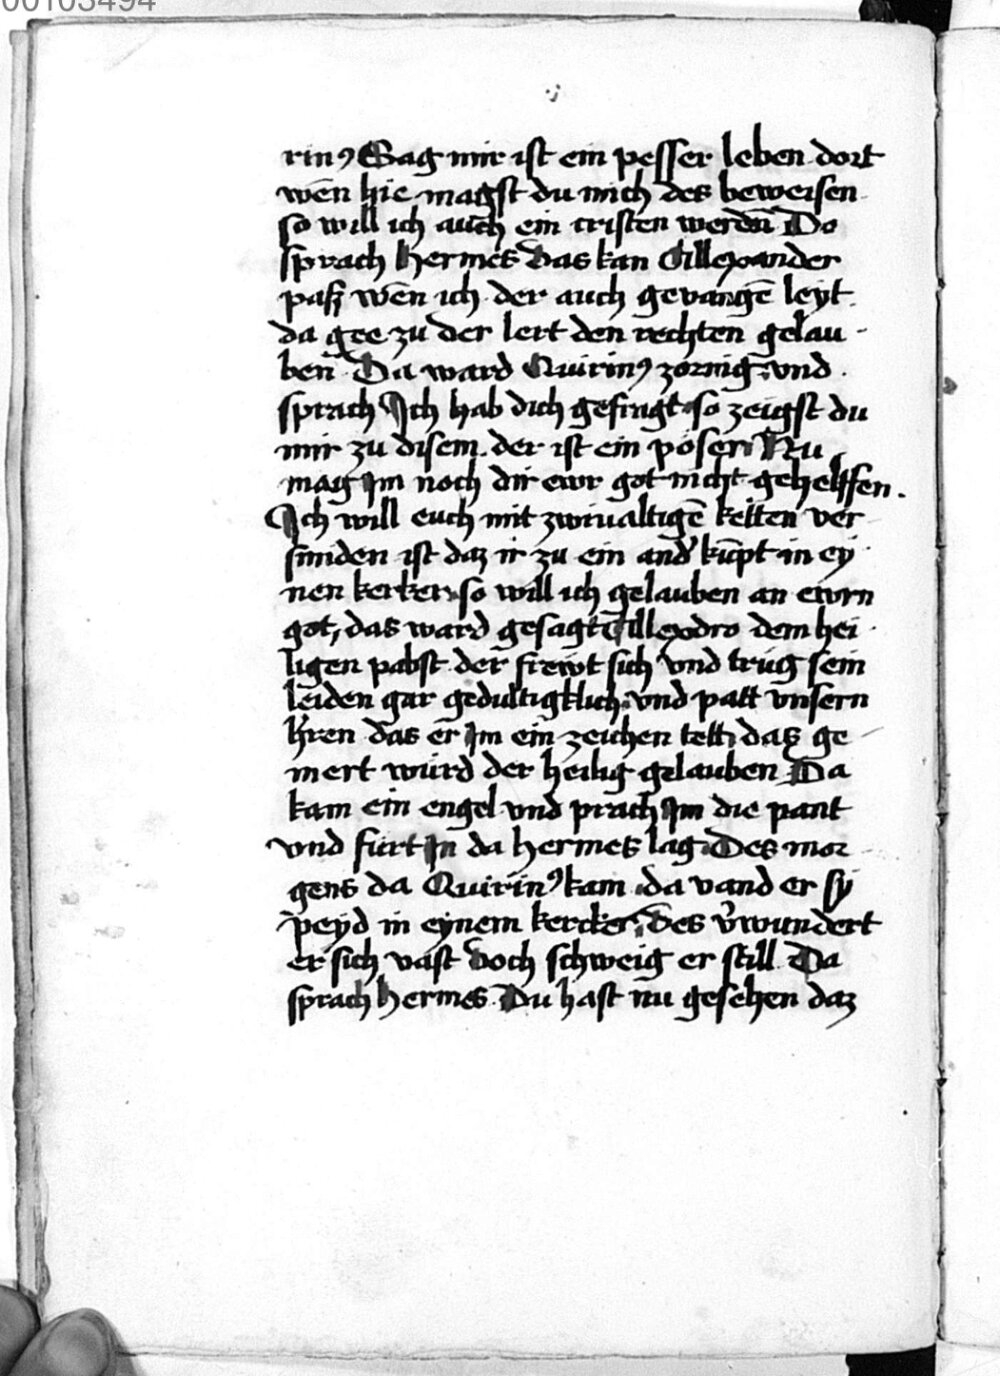 00103494
rinꝰ Sag mir ist ein pesser leben dort
wen̄ hie magst du mich des beweisen
so will ich auch ein cristen werden Do
sprach hermes das kan Allexander
pasz wen̄ ich der auch gevangē leyt
da gee zu der lert den rechten gelau
ben Da ward Quirinꝰ zornig vnd
sprach Ich hab dich gefragt so zeigst du
mir zu disem der ist ein pöser Nu
mag Im noch dir ewr got nicht gehelffen.
Ich will euch mit zwiualtigē ketten ver
smiden ist daz ir zu ein and' kūpt in ey
nen kerker so will ich gelauben an ewrn
got, das ward gesagt Allexdro dem hei
ligen pabst der frewt sich vnd trug sein
leiden gar gedultigklich vnd patt vnsern
h'ren das er Im ein zeichen tett das ge
mert würd der heilig gelauben Da
kam ein engel vnd prach Im die pant
vnd fürt In da hermes lag Des mor
gens da Quirinꝰ kam da vand er sy
peyd in eynem kercker des v'wundert
er sich vast doch schweig er still Da
sprach hermes Du hast nu gesehen daz